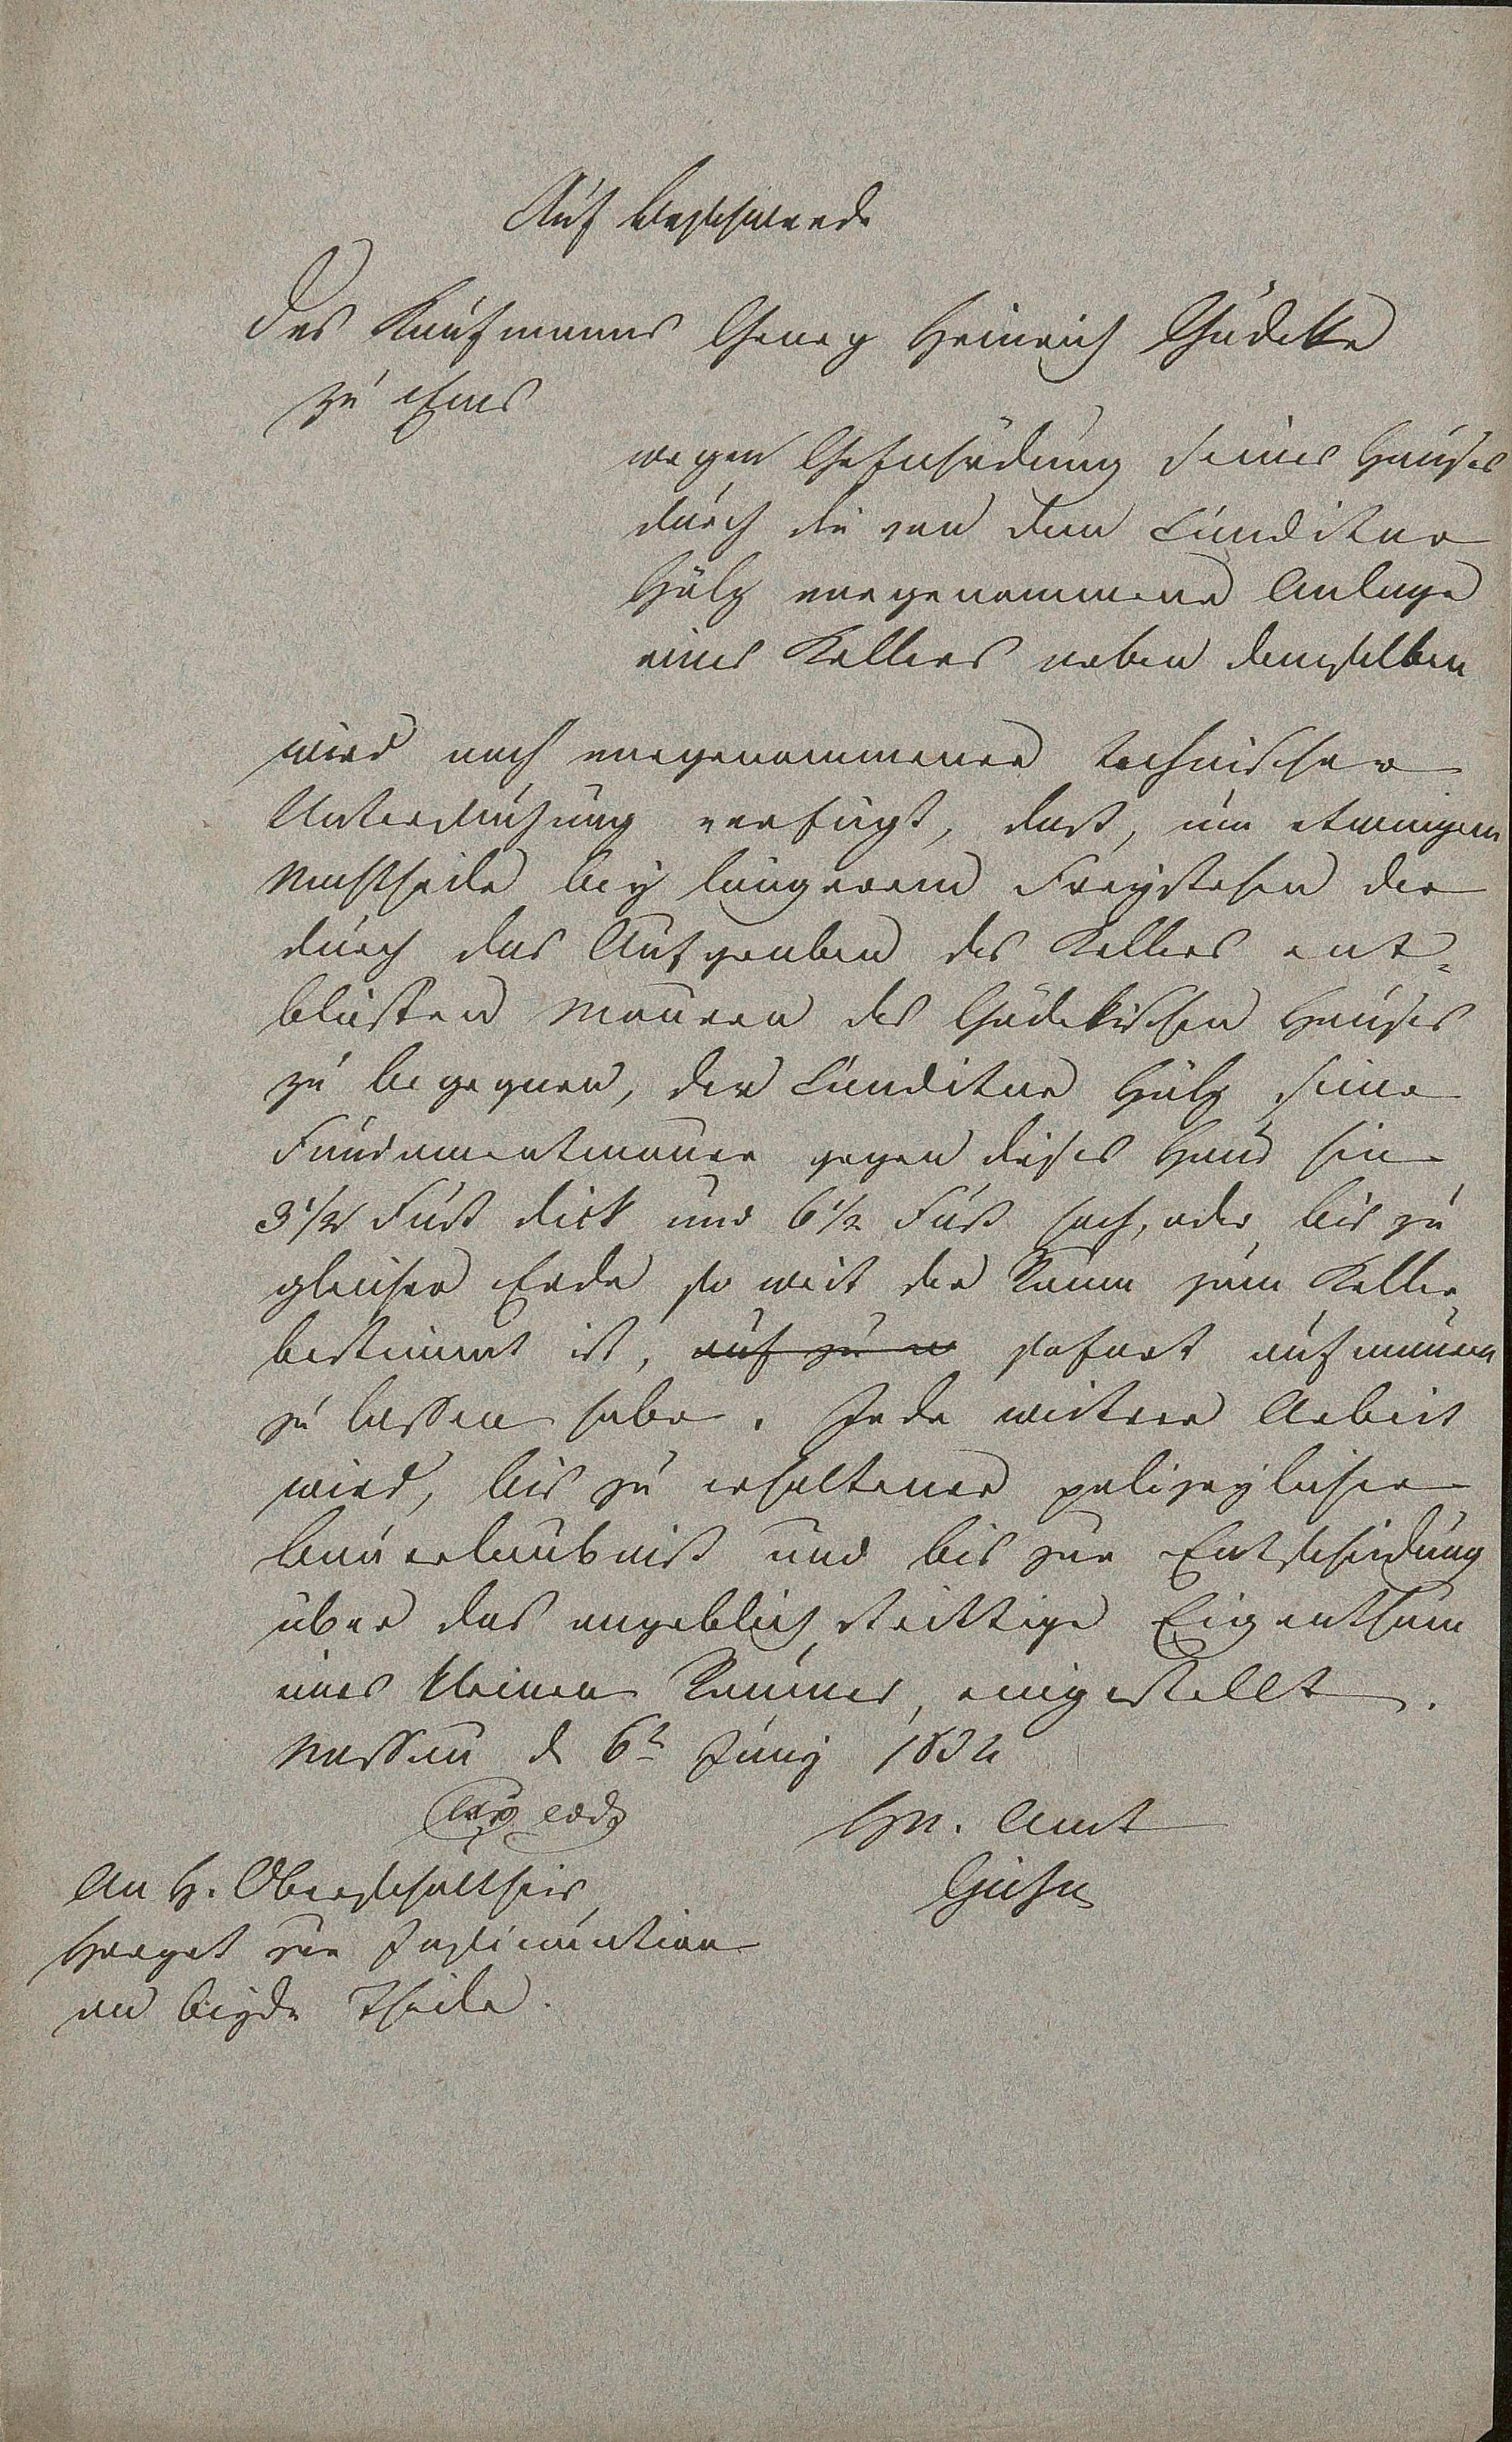 Auf Beschwerde
Des Kaufmanns Georg Heinrich Gädecke
zu Ems
wegen Gefährdung seines Hauses
durch die von dem Conditor
Hölz vorgenommene Anlage
eines Kellers neben demselben
wird nach vorgenommener technischer
Untersuchung verfügt, daß, um etwaigen
Nachtheile bey längerem Freystehen der
durch das Aufgraben des Kellers ent-
blößten Mauern des Gädekischen Hauses
zu begegnen, der Conditor Hölz seine
Fundamentmauer gegen dieses Haus hin
3 1/2 Fuß dick und 6 1/2 Fuß hoch, oder bis zu
gleicher Erde so weit der Raum zum Keller
bestimmt ist, auf zu sofort aufmauern
zu lassen habe. Jede weitere Arbeit
wird, bis zu erhaltener polizeylicher
Bauerlaubniß und bis zur Entscheidung
über das angeblich streittige Eigenthum
eines kleinen Raumes, eingestellt.
Nassau d 6t Juny 1832
Hn. Amt
An H. Oberschultheis
zur Insinuation
an beyde Theile.